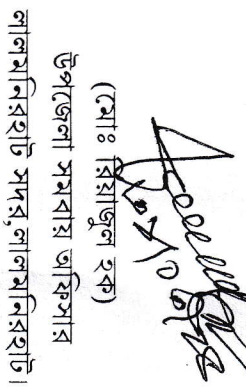 (মোঃ রিয়াজুল হক)
উপজেলা সমবায় অফিসার
লালমনিরহাট সদর,লালমনিরহাট।